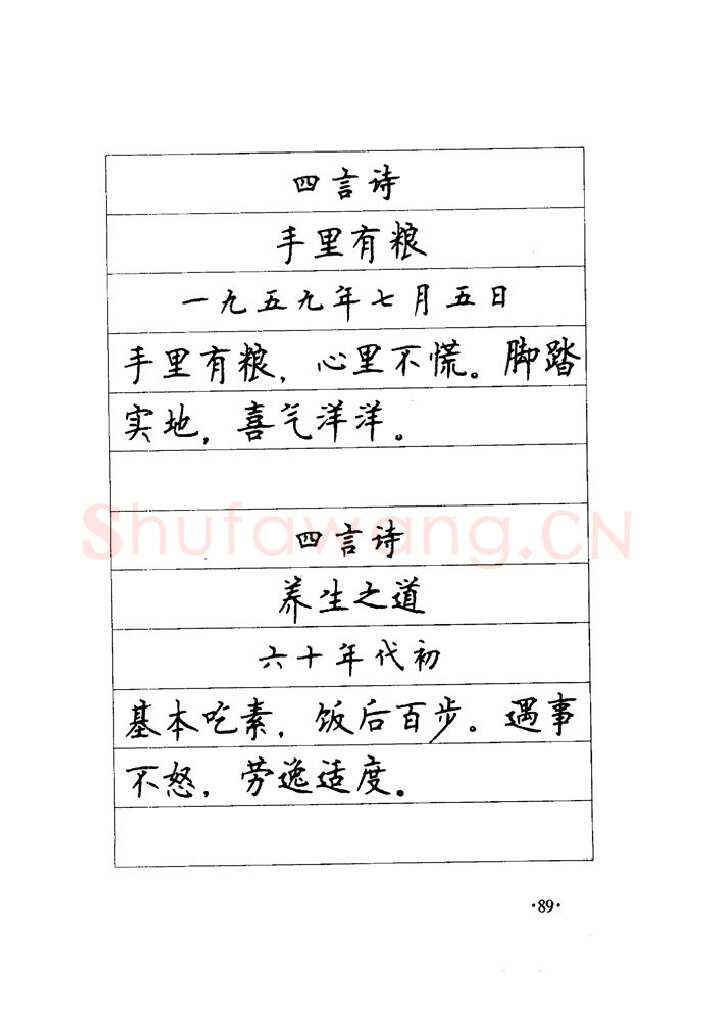 四言诗
手里有粮
一九五九年七月五日
手里有粮，心里不慌。脚踏
实地，喜气洋洋。
Shufawang.CN
四言诗
养生之道
六十年代初
基本吃素，饭后百步。遇事
不怒，劳逸适度。
·89·